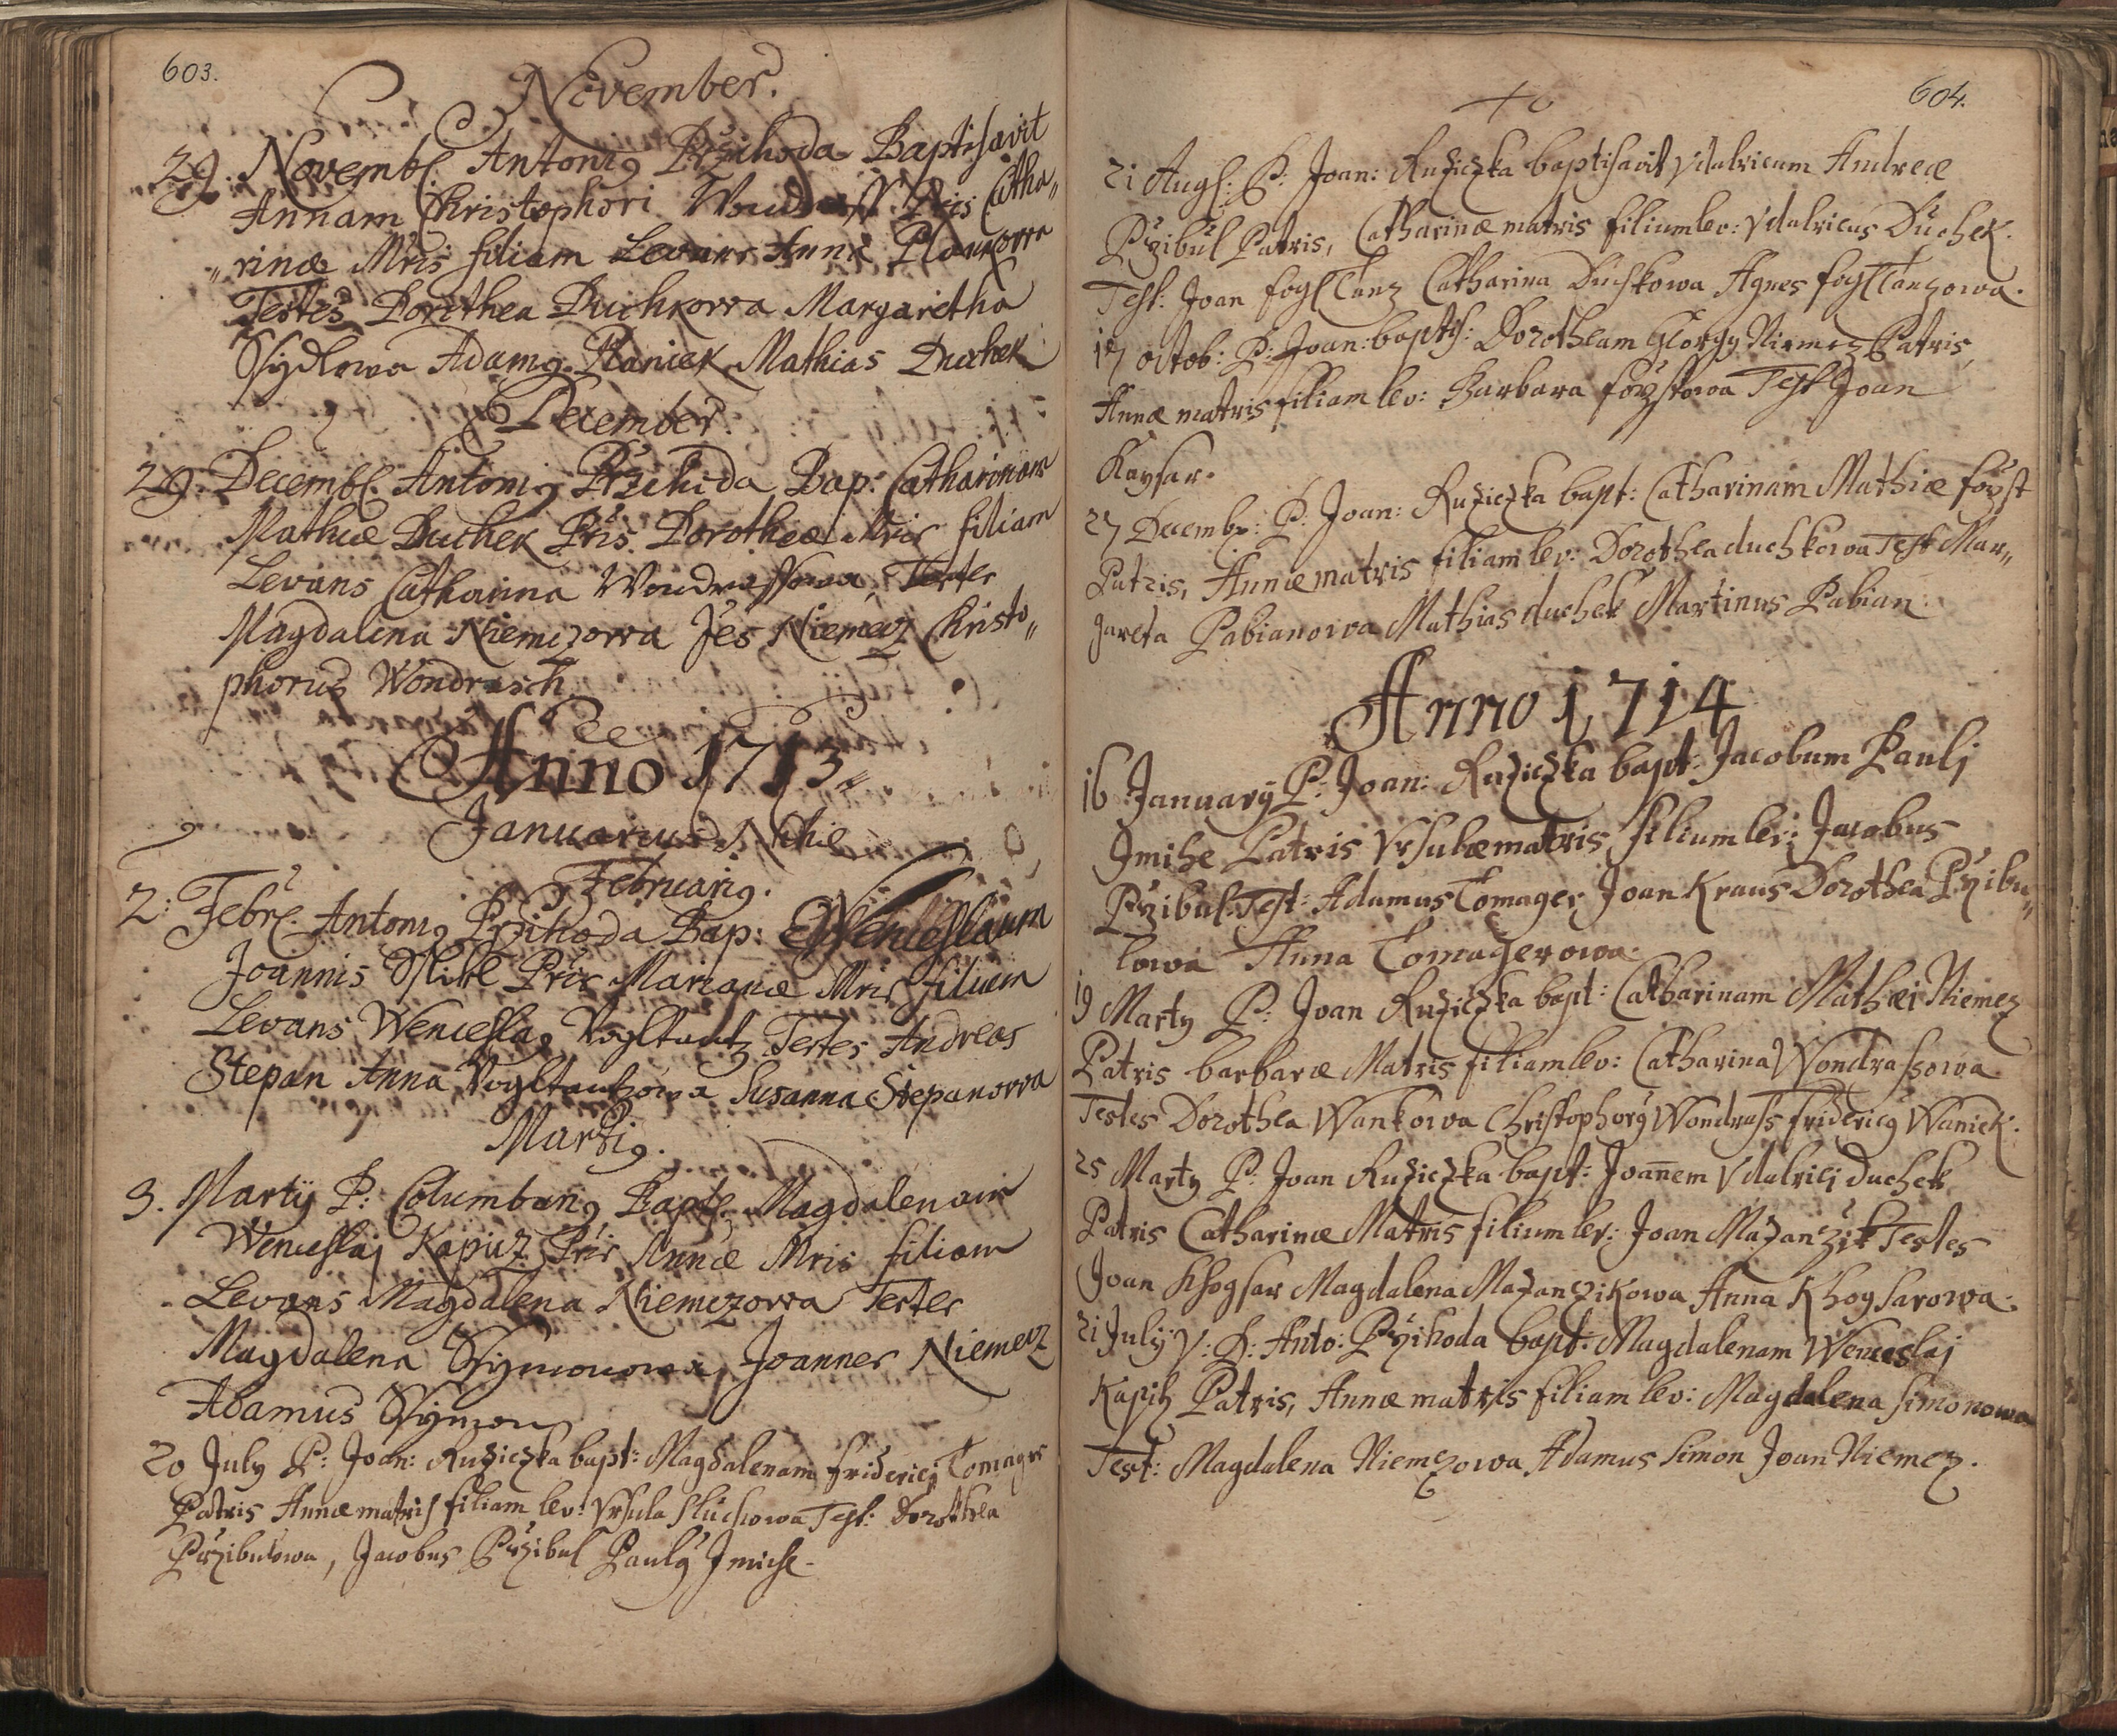 603.
November.
29. Novembr. Antonig Przihoda Baptisavit
Annam Christophori Wondrass Pris Catha„
„rinæ Mris filiam Levans Anna Plankowa
Testes Dorothea Duchkowa Margaretha
Ssydlowa Adamg Planiek Mathias Duchek
December.
29. Decembr. Antonig Przihoda Bap: Catharinam
Mathiæ Duchek Pris Dorotheæ Mris filiam
Levans Catharina Wondrassowa, Testes
Magdalena Niemczowa Jes Niemecz Christo„
phorus Wondrasch
Anno 1713
Januarius Nihil
Februarig.
2. Febr. Antonig Przihoda Bap: Wenceslaum
Joannis Pris Marianæ Mris filium
Levans Wenceslag Vogltantz Testes Andreas
Stepan Anna Vogltantzowa Susanna Stepanowa
Martig.
3. Martij P: Columbang Bapt. Magdalenam
Wenceslaj Kapicz Pris Annæ Mris filiam
Levans Magdalena Niemczowa Testes
Magdalena Ssymonowa, Joannes Niemecz
Adamus Ssymon
20 July P: Joan: Ruziczka bapt: Magdalenam Fridericj Tomager
Patris Annæ matris filiam lev: Vrsula Test: Dorothea
Przibulowa, Jacobus Przibul Paulg Jmiche
604.
21 Augs: P: Joan: Ruziczka baptisavit Vdalricum Andreæ
Przibul Patris, Catharinæ matris filium lev: Vdalricus Duchek.
Test: Joan fogltanz Catharina Duchkowa Agnes fogltanzowa.
17 octob: P: Joan: baptis: Dorotheam Georgy Niemez Patris,
Annæ matris filiam lev: Barbara förstowa Test Joan
Kaysar.
27 Decembr: P: Joan: Ruziczka bapt: Catharinam Mathiæ först
Patris, Annæ matris filiam lev: Dorothea duchkowa Test Mar„
gareta Pabianowa Mathias duchek Martinus Pabian.
Anno 1714
16 January P: Joan: Ruziczka bapt: Jacobum Paulj
Jmihe Patris Vrsulæ matris filium lev: Jacobus
Przibul Test: Adamus Tomager Joan Kraus Dorothea Przibu„
lowa Anna Tomagerowa.
19 Marty P: Joan Ruziczka bapt: Catharinam Mathæi Niemez
Patris barbaræ Matris filiam lev: Catharina Wondrassowa
Testes Dorothea Wankowa Christophorg Wondrass fridericg Waniek.
25 Marty P: Joan Ruziczka bapt: Joañem Vdalricj duchek
Patris Catharinæ Matris filium lev: Joan Mazanzik Testes
Joan Khogsar Magdalena Mazanzikowa Anna Khogsarowa.
21 July V: P: Anto: Przihoda bapt: Magdalenam Wenceslaj
Kapitz Patris, Annæ matris filiam lev: Magdalena simonowa
Test: Magdalena Niemczowa Adamus Simon Joan Niemez.